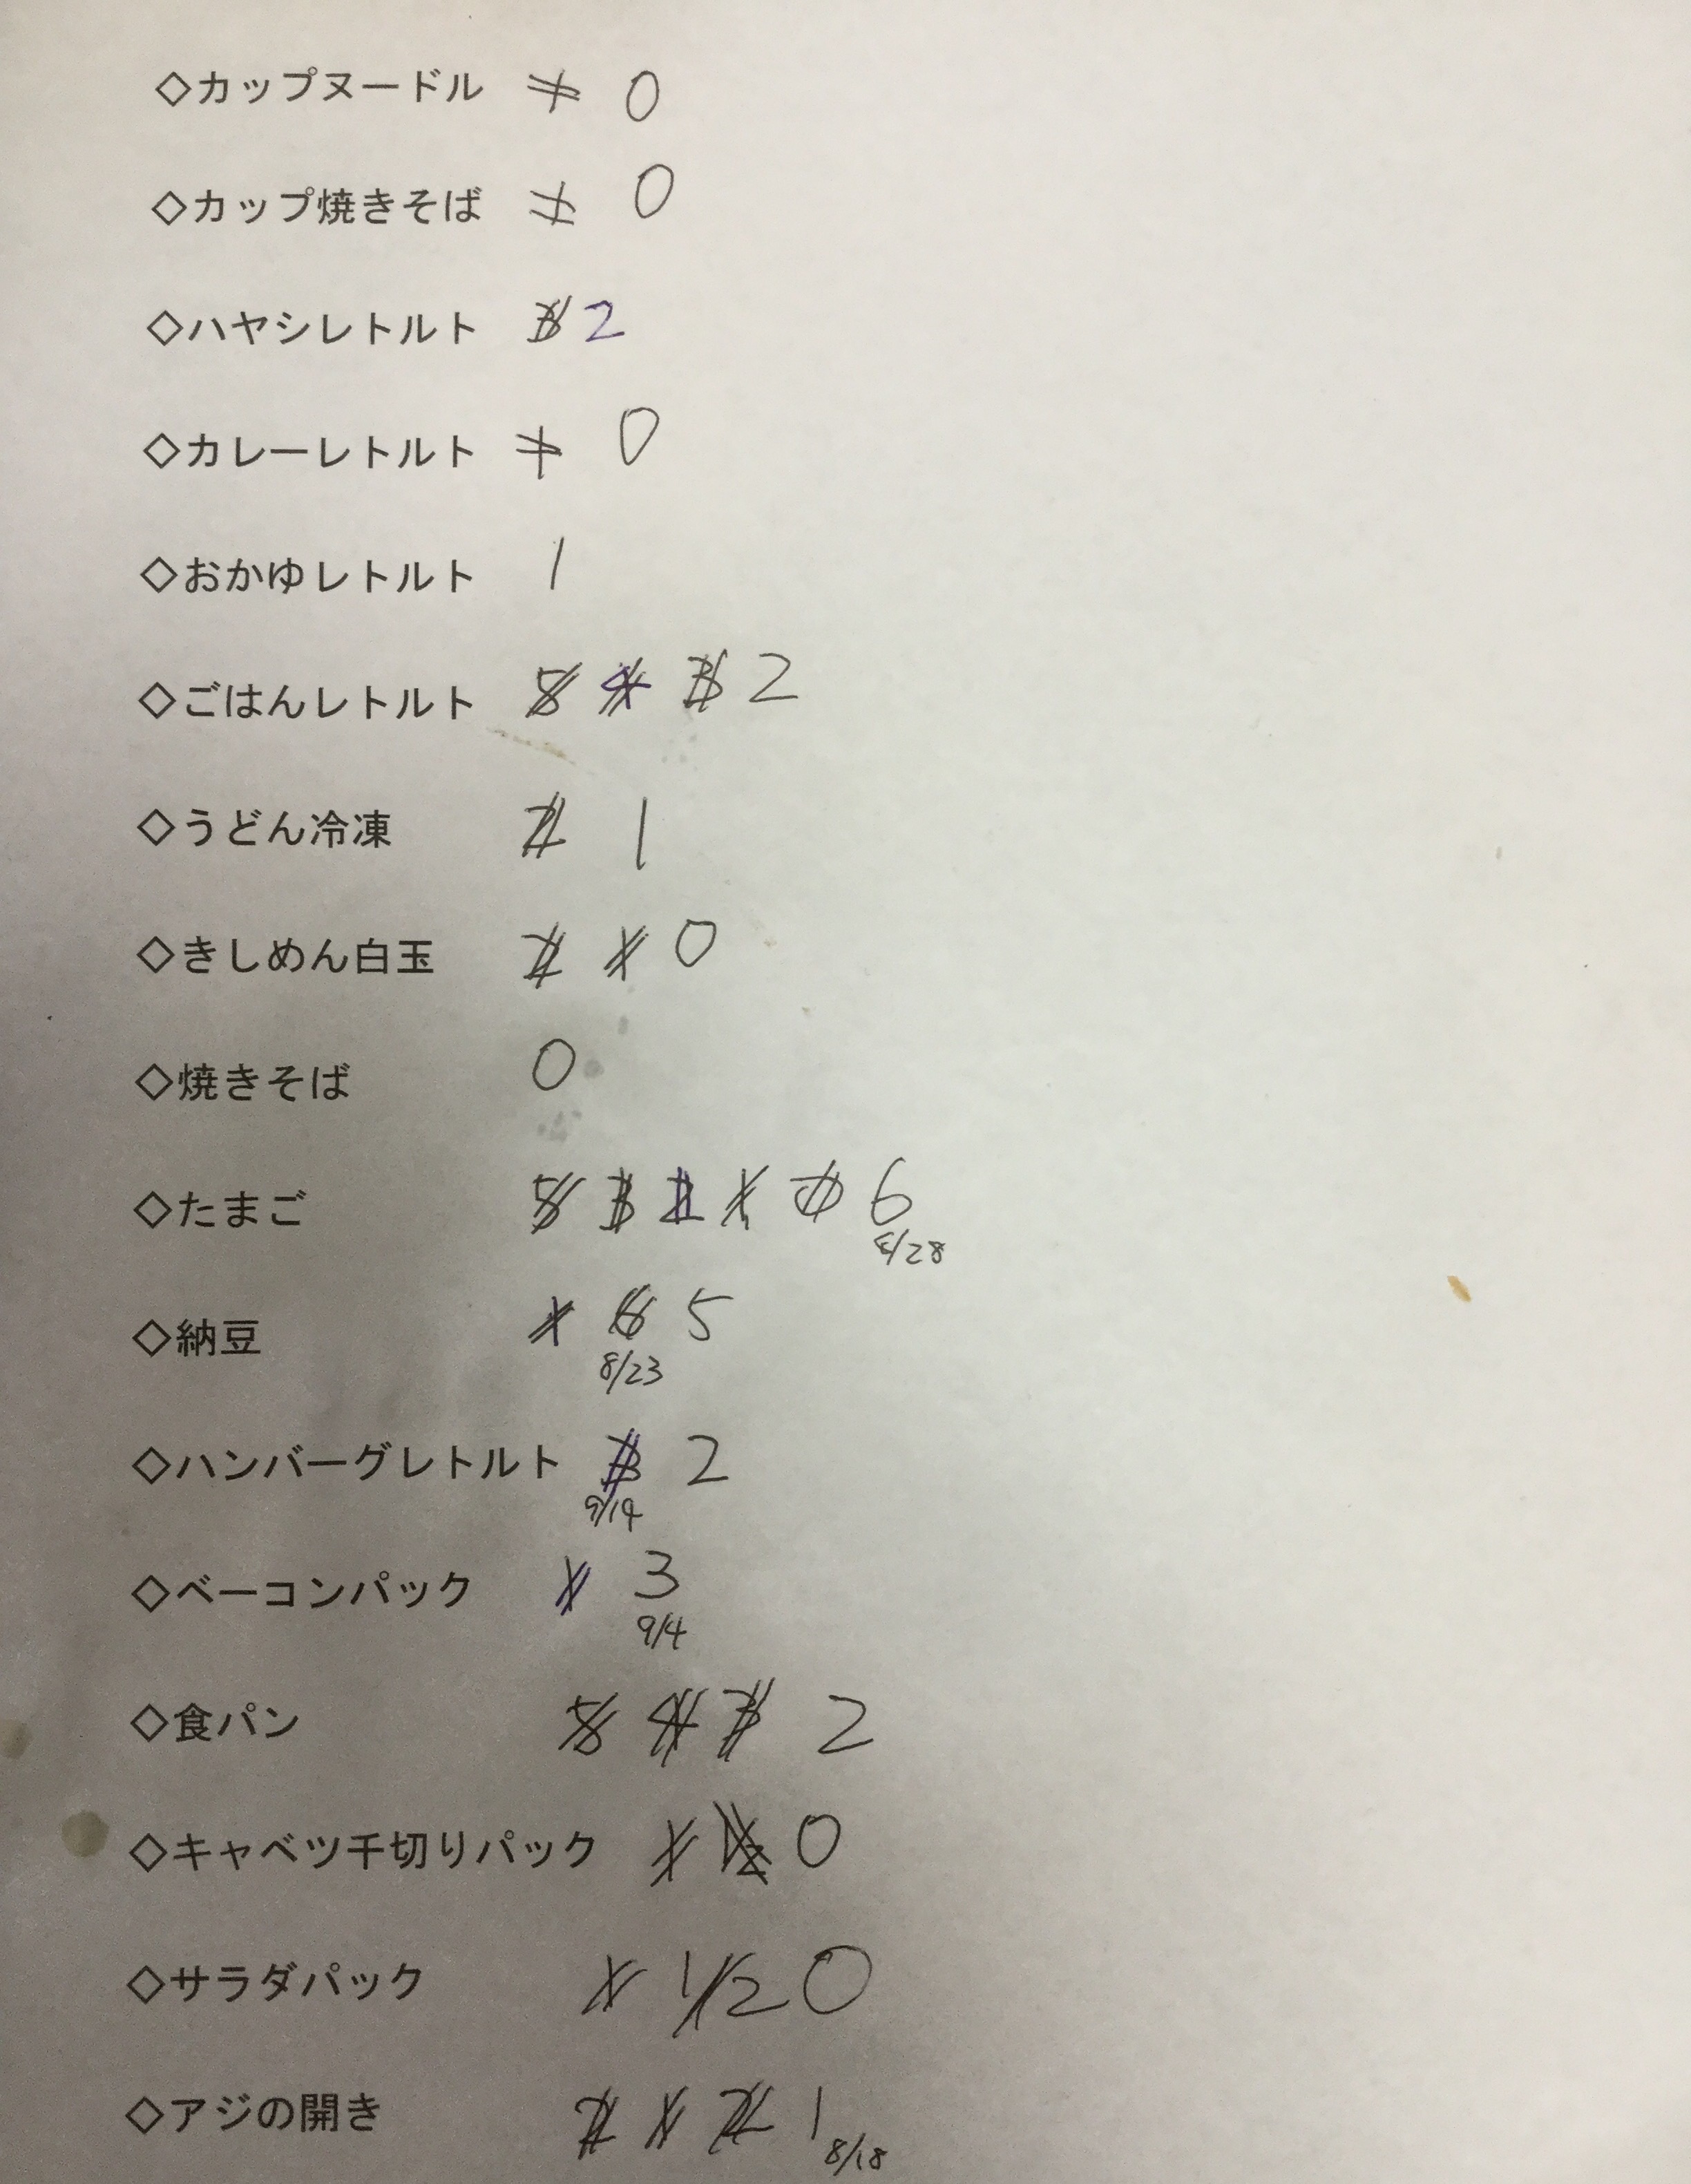 ◇カップヌードル 1 0
◇カップ焼きそば 1 0
◇ハヤシレトルト 3 2
◇カレーレトルト 1 0
◇おかゆレトルト 1
◇ごはんレトルト 5 4 3 2
◇うどん冷凍 2 1
◇きしめん白玉 2 1 0
◇焼きそば 0
◇たまご 5 3 2 1 0 6
8/28
◇納豆 1 6 5
8/23
◇ハンバーグレトルト 3 2
9/19
◇ベーコンパック 1 3
9/4
◇食パン 5 4 3 2
◇キャベツ千切りパック 1 1/2 0
◇サラダパック 1 1/2 0
◇アジの開き 2 1 2 1
8/18